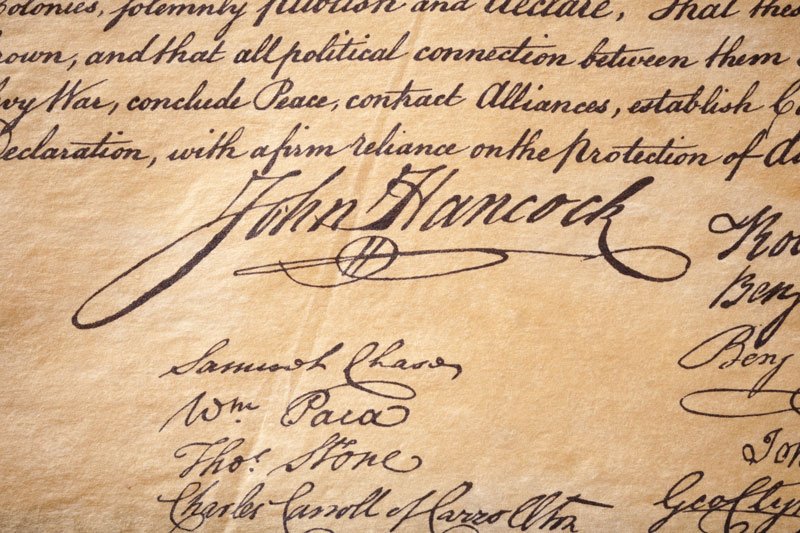 Colonies, solemnly publish and declare, That thes
rown, and that all political connection between them
vy War, conclude Peace, contract Alliances, establish Co
Declaration, with a firm reliance on the Protection of di
John Hancock
Samuel Chase
Wm. Paca
Thos. Stone
Charles Carroll of Carrollton
Benj
Benj
Geo Cly